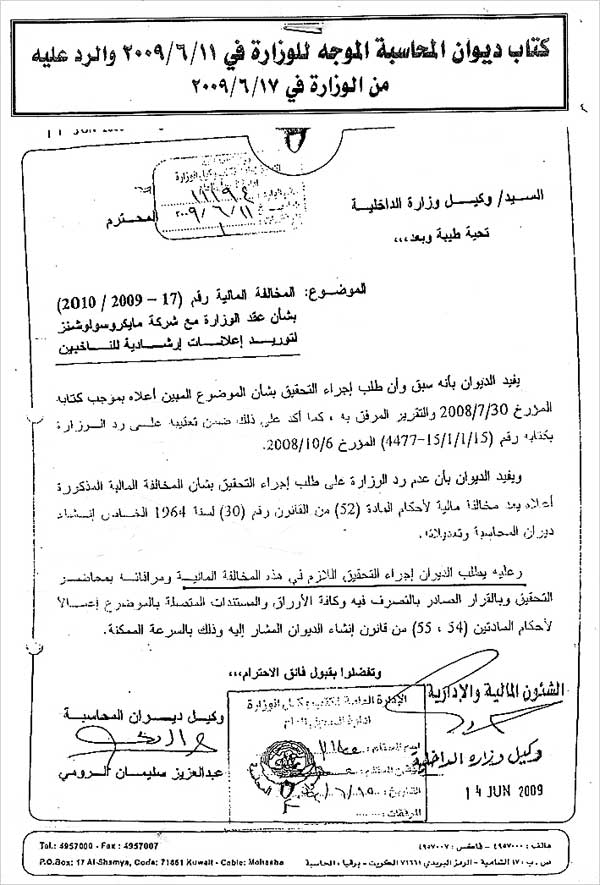 كتاب ديوان المحاسبة الموجه للوزارة في ٢٠٠٩/٦/١١ والرد عليه
من الوزارة في ٢٠٠٩/٦/١٧
JUN
السيد/ وكيل وزارة الداخلية
المحترم
تحية طيبة وبعد،،،
الموضوع: المخالفة المالية رقم (17 – 2009 / 2010)
بشأن عقد الوزارة مع شركة مايكروسولوشنز
لتوريد إعلانات إرشادية للناخبين
يفيد الديوان بأنه سبق وأن طلب إجراء التحقيق بشأن الموضوع المبين أعلاه بموجب كتابه
المؤرخ 2008/7/30 والتقرير المرفق به ، كما أكد على ذلك ضمن تعقيبه على رد الوزارة
بكتابه رقم (15/1/1/15-4477) المؤرخ 2008/10/6.
ويفيد الديوان بأن عدم رد الوزارة على طلب إجراء التحقيق بشأن المخالفة المالية المذكورة
أعلاه يعد مخالفة مالية لأحكام المادة (52) من القانون رقم (30) لسنة 1964 الخاص بإنشاء
ديوان المحاسبة وتعديلاته.
وعليه يطلب الديوان إجراء التحقيق اللازم في هذه المخالفة المالية وموافاته بمحاضر
التحقيق وبالقرار الصادر بالتصرف فيه وكافة الأوراق والمستندات المتصلة بالموضوع إعمالاً
لأحكام المادتين (54 ، 55) من قانون إنشاء الديوان المشار إليه وذلك بالسرعة الممكنة.
وتفضلوا بقبول فائق الاحترام،،،
الشئون المالية والإدارية
وكيل وزارة الداخلية
14 JUN 2009
الإدارة العامة لمكتب وكيل الوزارة
وكيل ديوان المحاسبة
عبدالعزيز سليمان الرومي
Tel.: 4957000 - Fax : 4957007
P.O.Box: 17 Al-Shamya, Code: 71661 Kuwait - Cable: Mohasba
هاتف: ٤٩٥٧٠٠٠ - فاكس: ٤٩٥٧٠٠٧
ص.ب ١٧ الشامية - الرمز البريدي ٧١٦٦١ الكويت - برقيا، المحاسبة